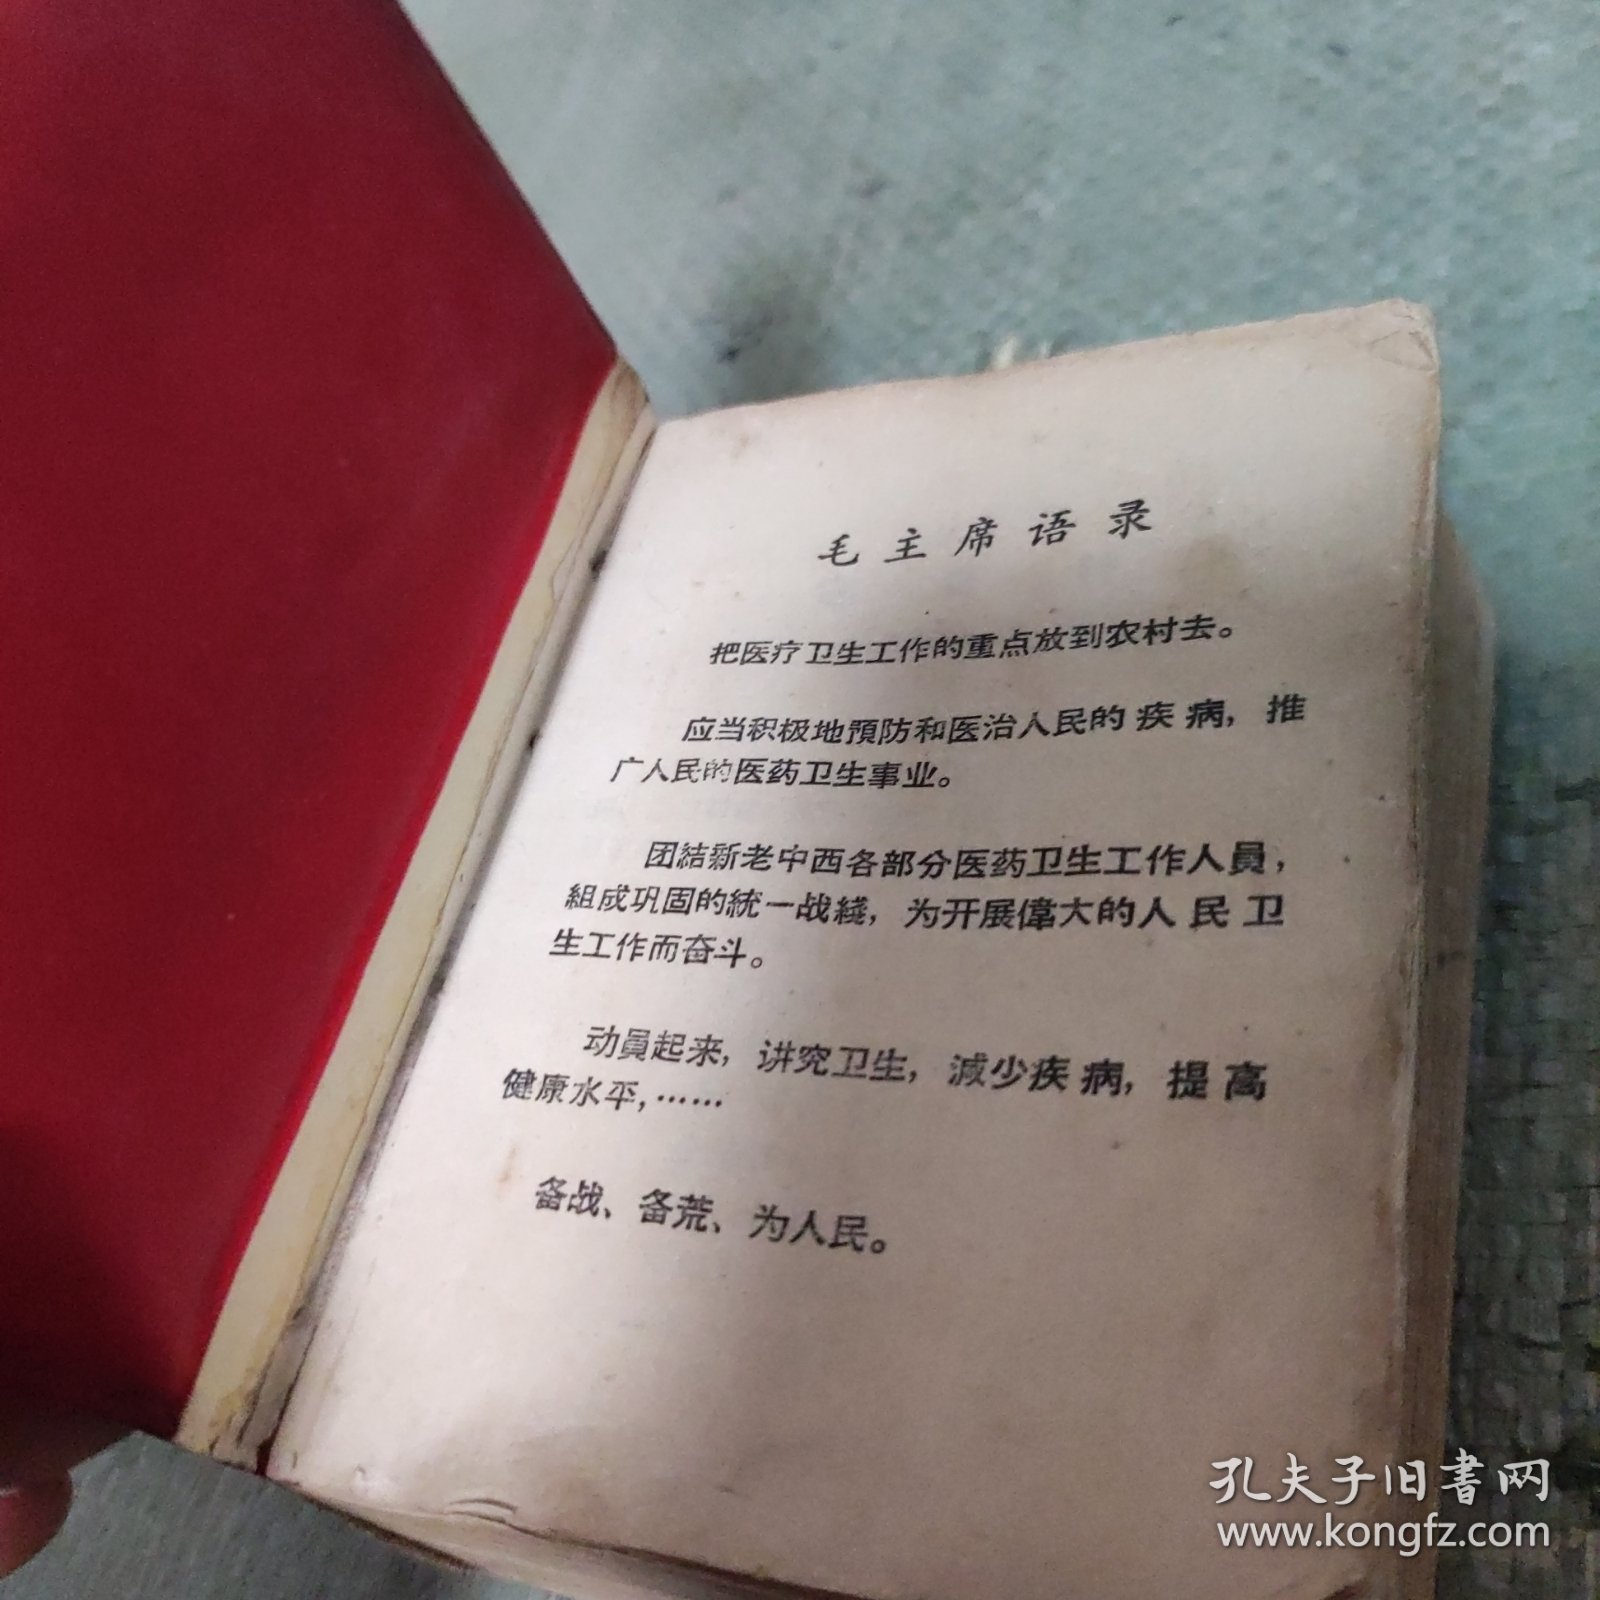 毛主席语录
把医疗卫生工作的重点放到农村去。
应当积极地預防和医治人民的疾病，推
广人民的医药卫生事业。
团結新老中西各部分医药卫生工作人員，
組成巩固的統一战綫，为开展偉大的人民卫
生工作而奋斗。
动員起来，讲究卫生，减少疾病，提高
健康水平，……
备战、备荒、为人民。
孔夫子旧书网
www.kongfz.com